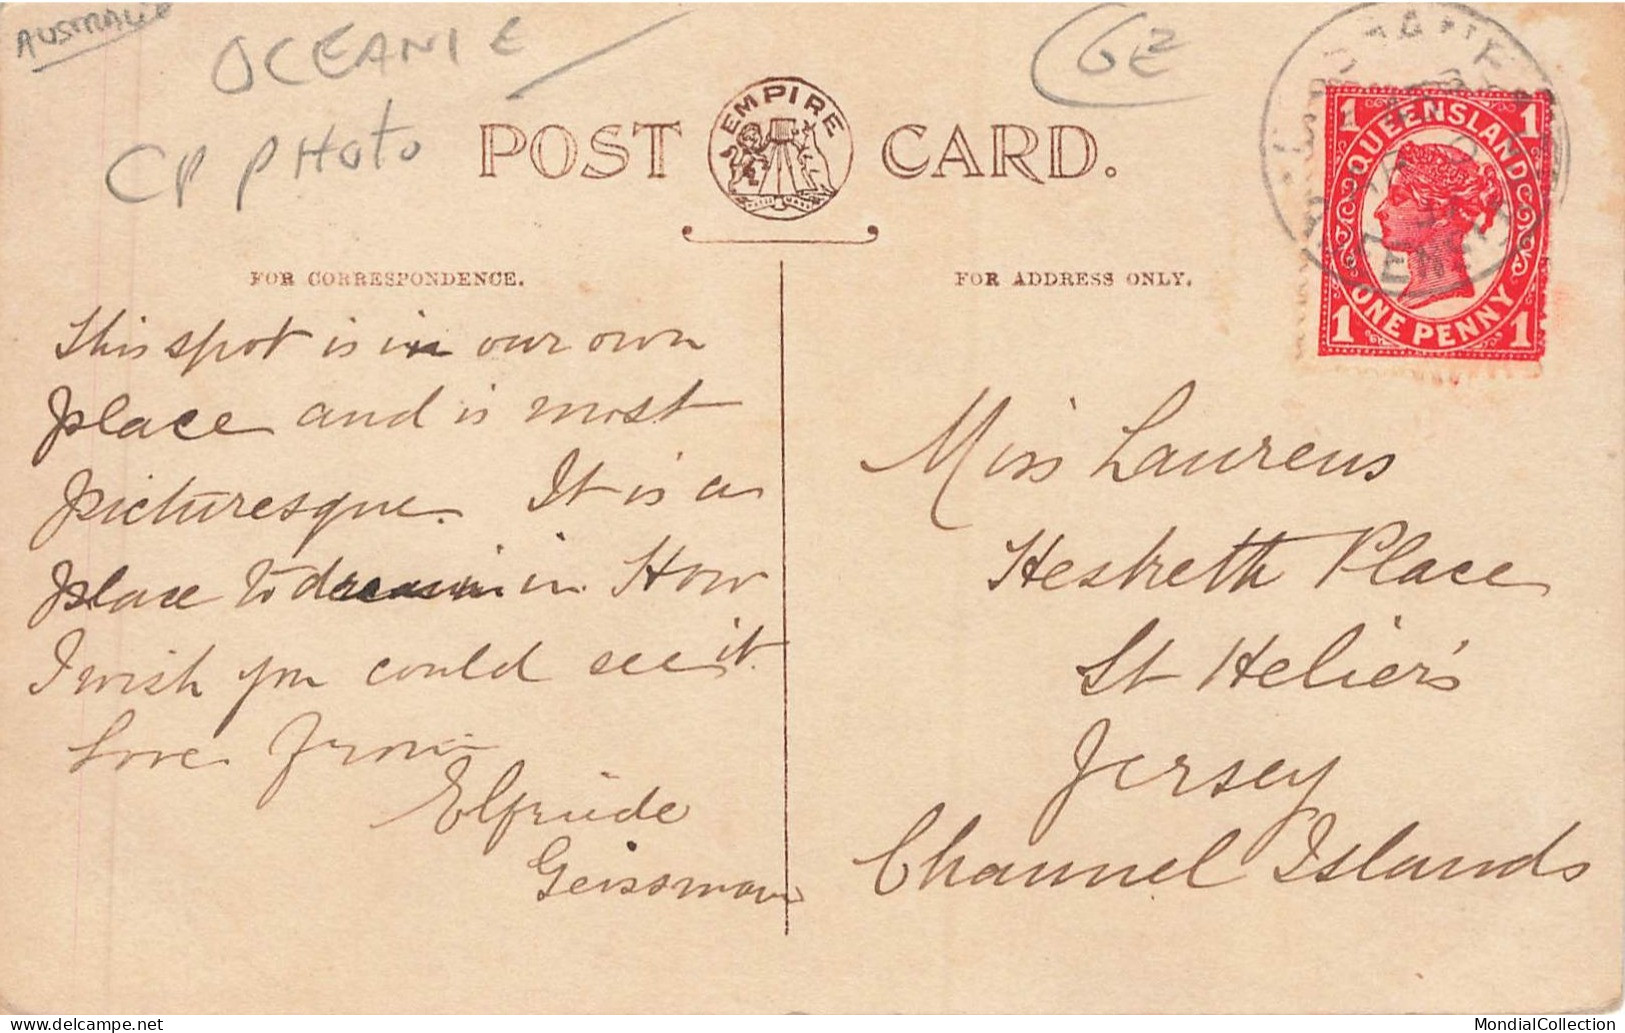 AUSTRALIE
OCEANIE
CP PHOTO
6E
POST CARD.
EMPIRE
FOR CORRESPONDENCE.
FOR ADDRESS ONLY.
1 1
QUEENSLAND
ONE PENNY
1 1
This spot is in our own
place and is most
picturesque. It is a
place to dream in. How
I wish you could see it.
Love from
Elfriede
Geissmann
Miss Laurens
Hesketh Place
St Helier's
Jersey
Channel Islands
delcampe.net
MondialCollection